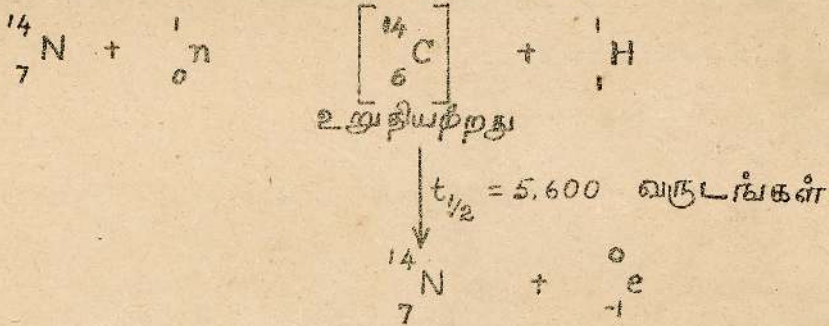 ¹⁴₇N + ¹₀n [¹⁴₆C] + ¹₁H
உறுதியற்றது
t₁/₂ = 5,600 வருடங்கள்
¹⁴₇N + ⁰₋₁e